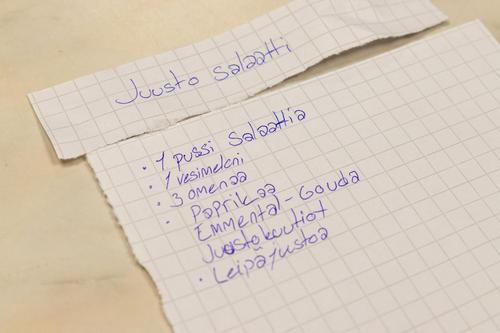 Juusto salaatti
· 1 pussi salaattia
· 1 vesimeloni
· 3 omenaa
· Paprikaa
Emmental-Gouda
Juustokuutiot
· Leipäjuustoa